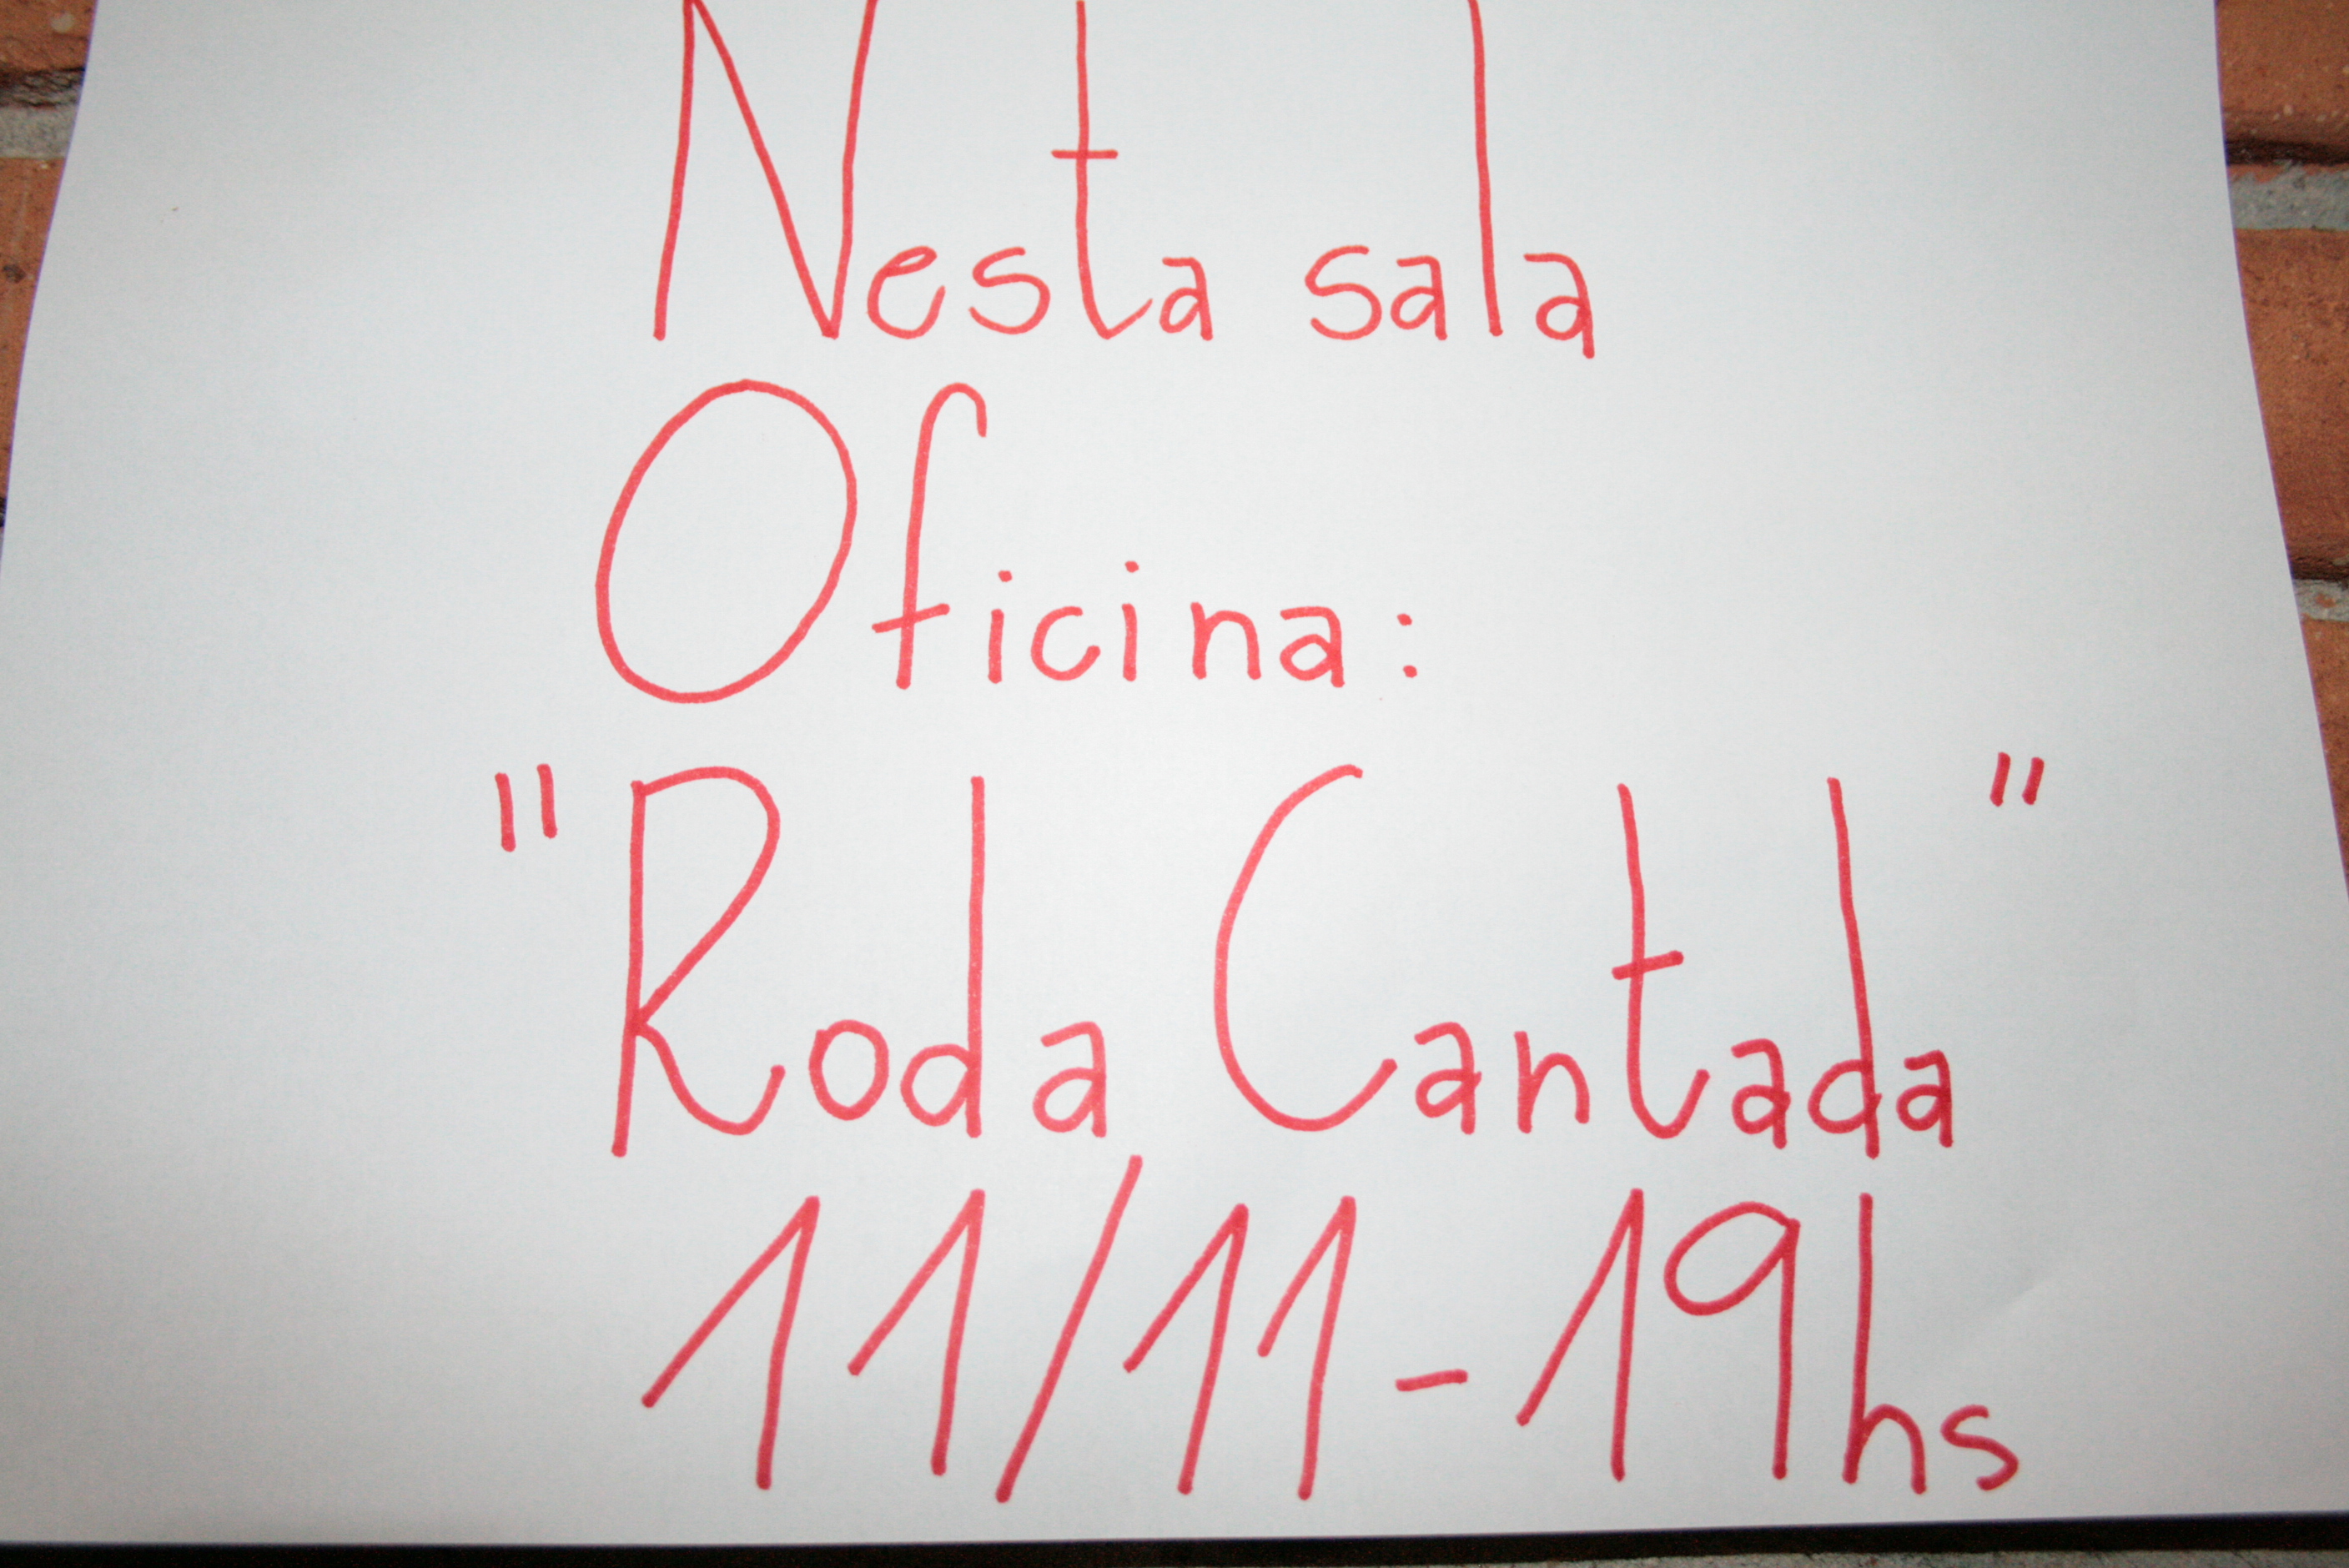 Nesta sala
Oficina:
"Roda Cantada"
11/11-19hs